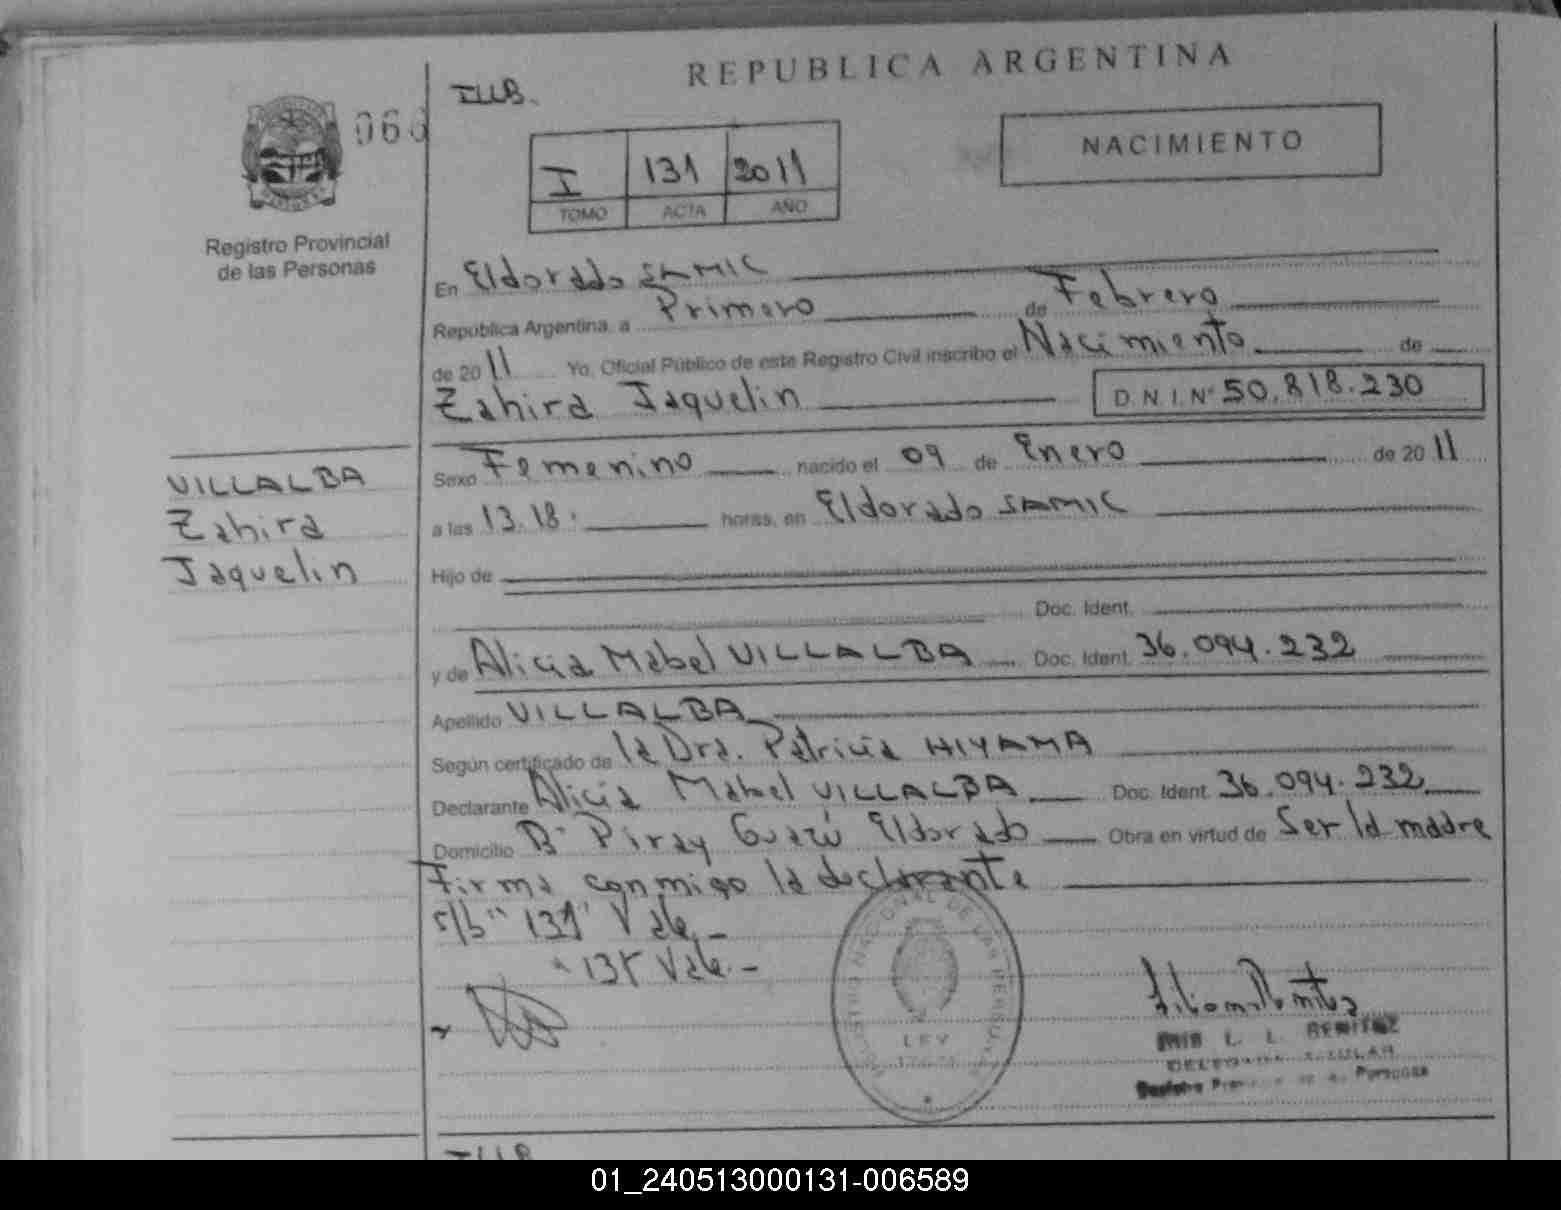 REPUBLICA ARGENTINA
066
ILLB.
I 131 2011
TOMO ACTA AÑO
NACIMIENTO
Registro Provincial
de las Personas
En Eldorado SAMIC
República Argentina, a Primero de Febrero
de 2011 Yo, Oficial Público de este Registro Civil inscribo el Nacimiento de
Zahira Jaquelin D.N.I.Nº 50.818.230
VILLALBA
Zahira
Jaquelin
Sexo Femenino nacido el 09 de Enero de 2011
a las 13.18. horas, en Eldorado SAMIC
Hijo de
Doc. Ident.
y de Alicia Mabel VILLALBA Doc. Ident. 36.094.232
Apellido VILLALBA
Según certificado de la Dra. Patricia HIYAMA
Declarante Alicia Mabel VILLALBA Doc. Ident. 36.094.232
Domicilio Bº Piray Guazú Eldorado Obra en virtud de Ser la madre
Firma conmigo la declarante
s/b "131" Vale.-
Vale.-
REGISTRO NACIONAL DE LAS PERSONAS
LEY
L. L. BENITEZ
DELEGADA TITULAR
ILLB
01_240513000131-006589